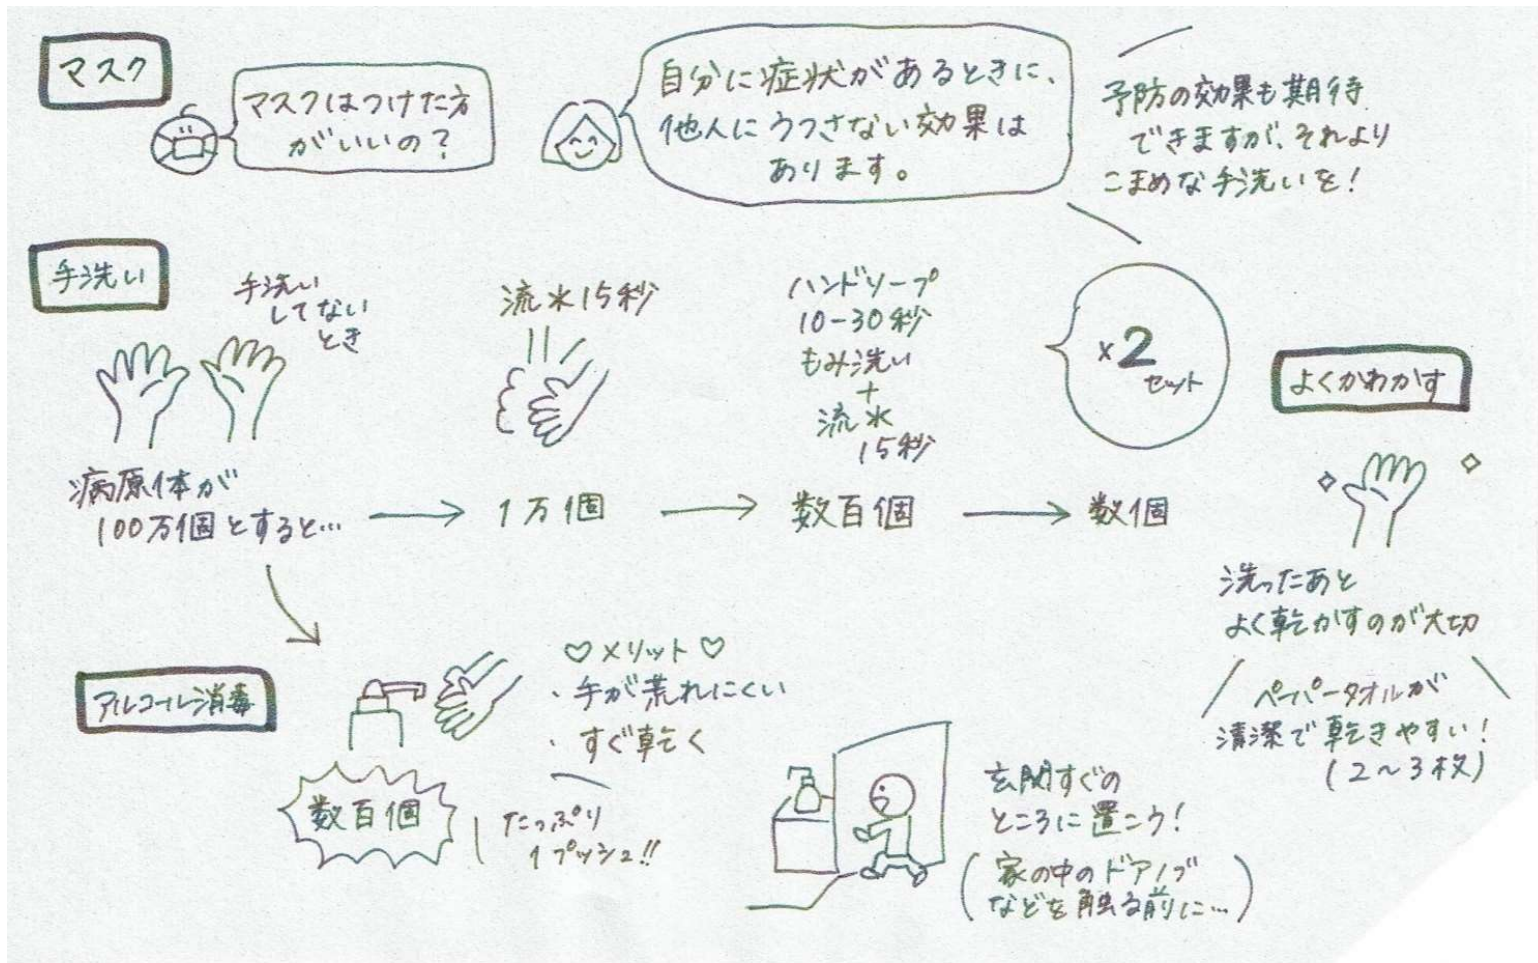 マスク
マスクはつけた方
がいいの？
自分に症状があるときに、
他人にうつさない効果は
あります。
予防の効果も期待
できますが、それより
こまめな手洗いを！
手洗い
手洗い
してない
とき
流水15秒
ハンドソープ
10-30秒
もみ洗い
+
流水
15秒
×2
セット
病原体が
100万個とすると…
1万個
数百個
数個
よくかわかす
洗ったあと
よく乾かすのが大切
ペーパータオルが
清潔で乾きやすい！
(2〜3枚)
アルコール消毒
♡メリット♡
・手が荒れにくい
・すぐ乾く
数百個
たっぷり
1プッシュ!!
玄関すぐの
ところに置こう！
(家の中のドアノブ
などを触る前に…)